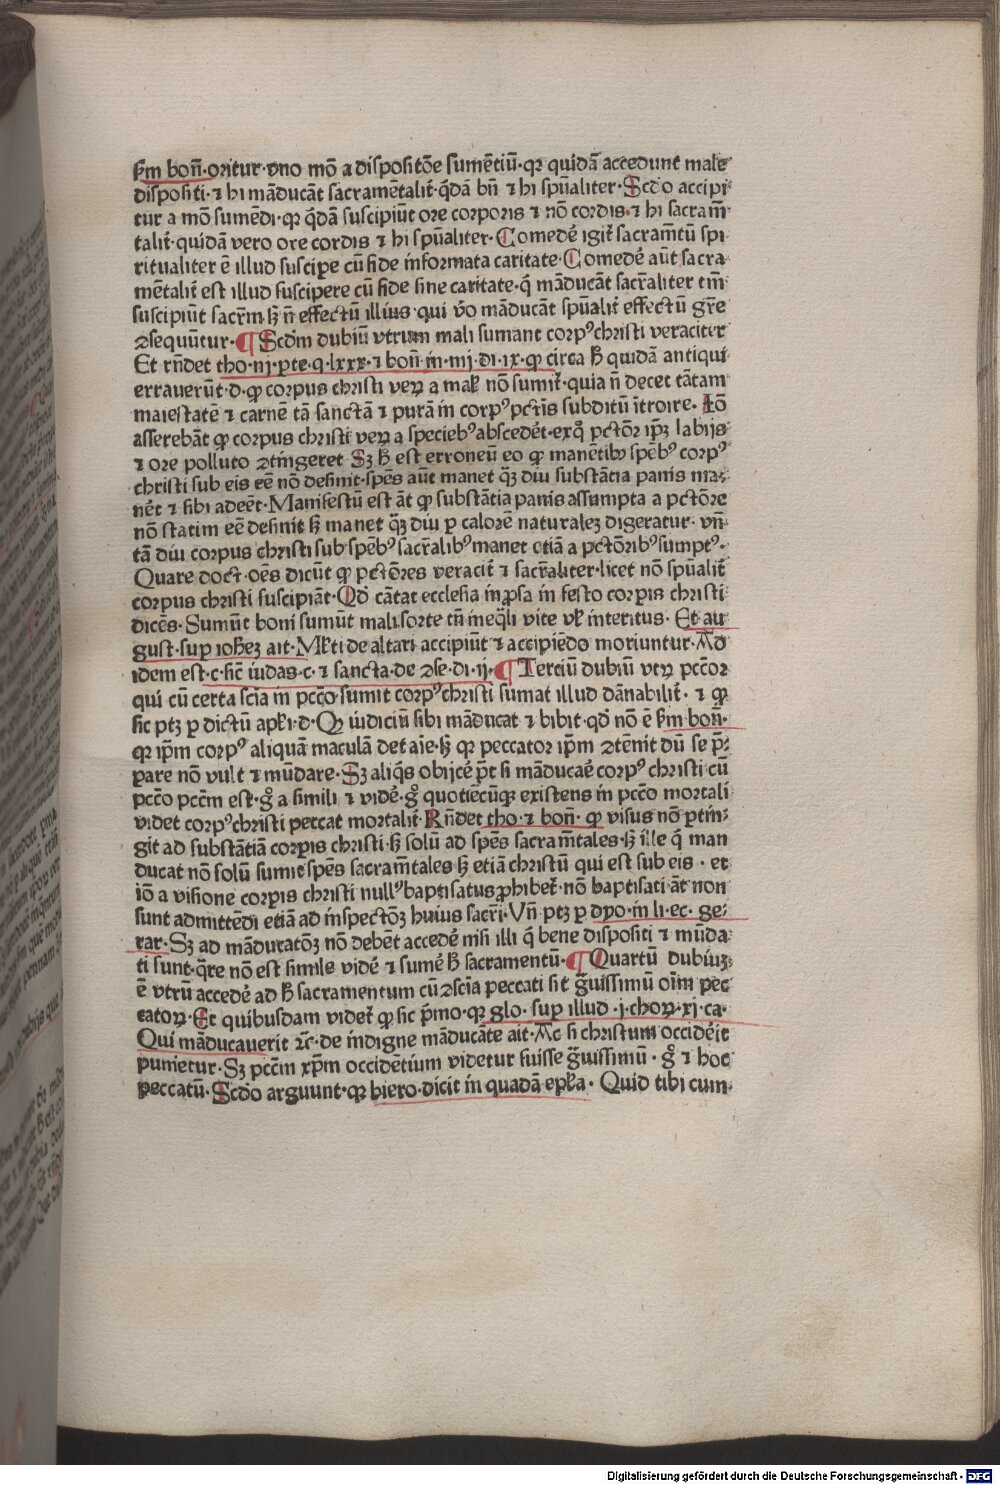 ẜm bon̄·oritur·vno mō a dispositōe sumētiū·qꝛ quidā accedunt male
dispositi·⁊ hi māducāt sacramētalit̄·q̄dā bn̄ ⁊ hi spūaliter·Scd̄o accipi
tur a mō sumēdi·qꝛ q̄dā suscipiūt ore corporis ⁊ nō cordis·⁊ hi sacram̄
talit̄·quidā vero ore cordis ⁊ hi spūaliter·Comedē igit̄ sacram̄tū spi
ritualiter ē illud suscipe cū fide informata caritate·Comedē aūt sacra
mētalit̄ est illud suscipere cū fide sine caritate·q̄ māducāt sacr̄aliter tm̄
suscipiūt sacr̄m ꝫ n̄ effectū illius·qui v̄o māducāt spūalit̄ effectū gr̄e
ꝯsequūtur·¶ Scd̄m dubiū vtrum mali sumant corpꝰ christi veraciter
Et rn̄det tho·iij·ꝑte·q·lxxx·⁊ bon̄ in·iiij·di·ix·ꝙ circa ꝫ quidā antiqui
errauerūt·d·ꝙ corpus christi veꝝ a mał nō sumit̄·quia n̄ decet tātam
maiestatē ⁊ carnē tā sanctā ⁊ purā in corpꝰ pctīs subditū ītroire·Iō
asserebāt ꝙ corpus christi veꝝ a speciebꝰ abscedēt·exq̄ pctōꝝ ip̄ꝫ labijs
⁊ ore polluto ꝯtingeret Sꝫ ꝫ est erroneū eo ꝙ manētibꝰ spēbꝰ corpꝰ
christi sub eis eē nō desinit·spēs aūt manet q̄ꝫ diu substātia panis ma
nēt ⁊ sibi adeēt·Manifestū est āt ꝙ substātia panis assumpta a pctōre
nō statim eē desinit ꝫ manet q̄ꝫ diu ꝑ calorē naturaleꝫ digeratur·vn̄
tā diu corpus christi sub spēbꝰ sacr̄alibꝰ manet etiā a pctōribꝰ sumptꝰ·
Quare doct·oēs dicūt ꝙ pctōres veracit̄ ⁊ sacr̄aliter·licet nō spūalit̄
corpus christi suscipiāt·Qd̄ cātat ecclesia in ꝓsa in festo corꝑis christi
dicēs·Sumūt boni sumūt mali·sorte tn̄ ineq̄li vite vł interitus·Et au
gust·suꝑ ioheꝫ ait·Ml̄ti de altari accipiūt ⁊ accipiēdo moriuntur·Ad
idem est·c·sic̄ iudas·c·⁊ sancta·de ꝯse·di·ij·¶ Terciū dubiū vtꝝ pcc̄or
qui cū certa sciā in pcc̄o sumit corpꝰ christi sumat illud dānabilit̄·⁊ ꝙ
sic ptꝫ ꝑ dictū apl̄i·d·Qꝫ iudiciū sibi māducat ⁊ bibit·qd̄ nō ē ẜm bon̄·
qꝛ ip̄m corpꝰ aliquā maculā det aīe·ꝫ qꝛ peccator ip̄m ꝯtēnit dū se p̄
pare nō vult ⁊ mūdare·Sꝫ aliq̄s obijcē p̄t si māducaē corpꝰ christi cū
pcc̄o pcc̄m est·gͦ a simili ⁊ vidē·gͦ quotiēcūqꝫ existens in pcc̄o mortali
videt corpꝰ christi peccat mortalit̄·Rn̄det tho·⁊ bon̄·ꝙ visus nō ptin
git ad substātiā corꝑis christi·ꝫ solū ad spēs sacram̄tales·ꝫ ille q̄ man
ducat nō solū sumit spēs sacram̄tales ꝫ etiā christū qui est sub eis·et
iō a visione corꝑis christi nullꝰ baptisatus ꝓhibet̄·nō baptisati āt non
sunt admittēdi etiā ad inspectōꝫ huius sacr̄i·Vn̄ ptꝫ ꝑ dyo·in li·ec·ge
rar·Sꝫ ad māduratōꝫ nō debēt accedē nisi illi q̄ bene dispositi ⁊ mūda
ti sunt·q̄re nō est simile vidē ⁊ sumē ꝫ sacramentū·¶ Quartū dubiuꝫ
ē vtrū accedē ad ꝫ sacramentum cū ꝯsciā peccati sit g̃uissimū oīm pec
catoꝝ·Et quibusdam videt̄ ꝙ sic pͥmo·qꝛ glo·suꝑ illud·j·choꝝ·xj·ca·
Qui māducauerit ⁊c̄·de indigne māducāte ait·Ac si christum occidērit
punietur·Sꝫ pcc̄m xp̄m occidētium videtur fuisse g̃uissimū·gͦ ⁊ hoc
peccatū·Scd̄o arguunt·qꝛ hiero·dicit in quadā epl̄a·Quid tibi cum
Digitalisierung gefördert durch die Deutsche Forschungsgemeinschaft - DFG